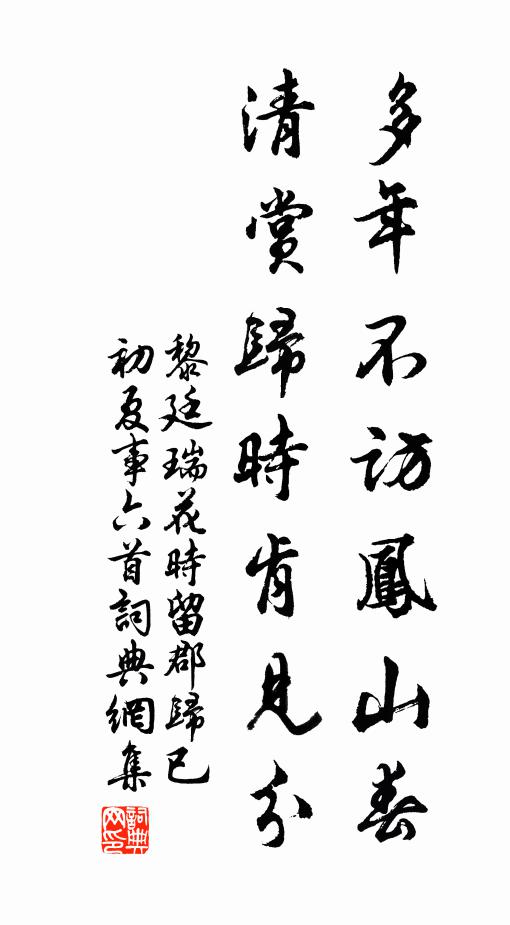 多年不訪鳳山春
清賞歸時肯見分
黎廷瑞花時留郡歸已
初夏事六首詞典網集
詞典網印